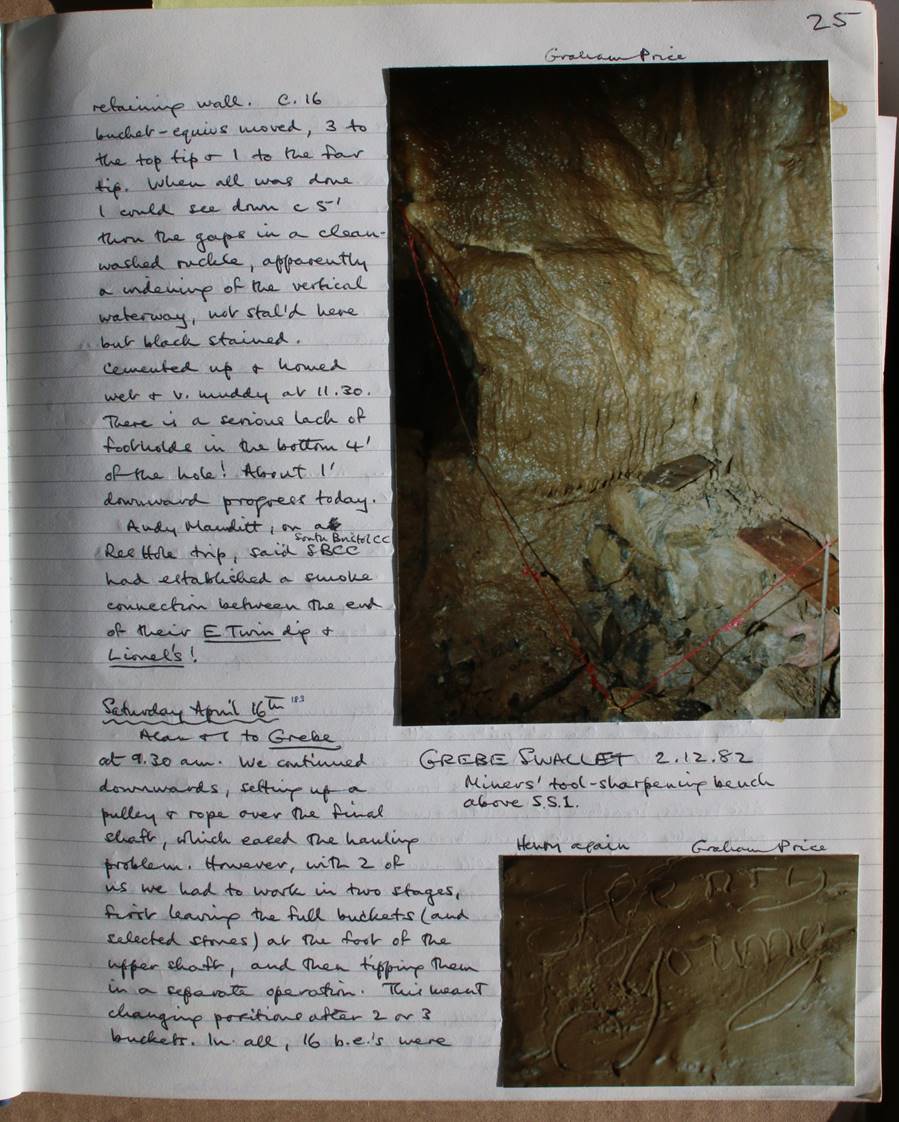 25
Graham Price
retaining wall. C. 16
bucket-equivs moved, 3 to
the top tip & 1 to the far
tip. When all was done
I could see down c 5'
thru the gaps in a clean-
washed ruckle, apparently
a widening of the vertical
waterway, not stal'd here
but black stained.
Cemented up & homed
wet & v. muddy at 11.30.
There is a serious lack of
footholds in the bottom 4'
of the hole! About 1'
downward progress today.
Andy Mauditt, on a
South Bristol CC
Ree Hole trip, said SBCC
had established a smoke
connection between the end
of their E Twin dip &
Lionel's!
Saturday April 16th '83
Alan & I to Grebe
at 9.30 am. We continued
downwards, setting up a
pulley & rope over the final
shaft, which eased the hauling
problem. However, with 2 of
us we had to work in two stages,
first leaving the full buckets (and
selected stones) at the foot of the
upper shaft, and then tipping them
in a separate operation. This meant
changing positions after 2 or 3
buckets. In all, 16 b.e.'s were
GREBE SWALLET 2.12.82
Miners' tool-sharpening bench
above S.S.1.
Henry again Graham Price
Henry
Young